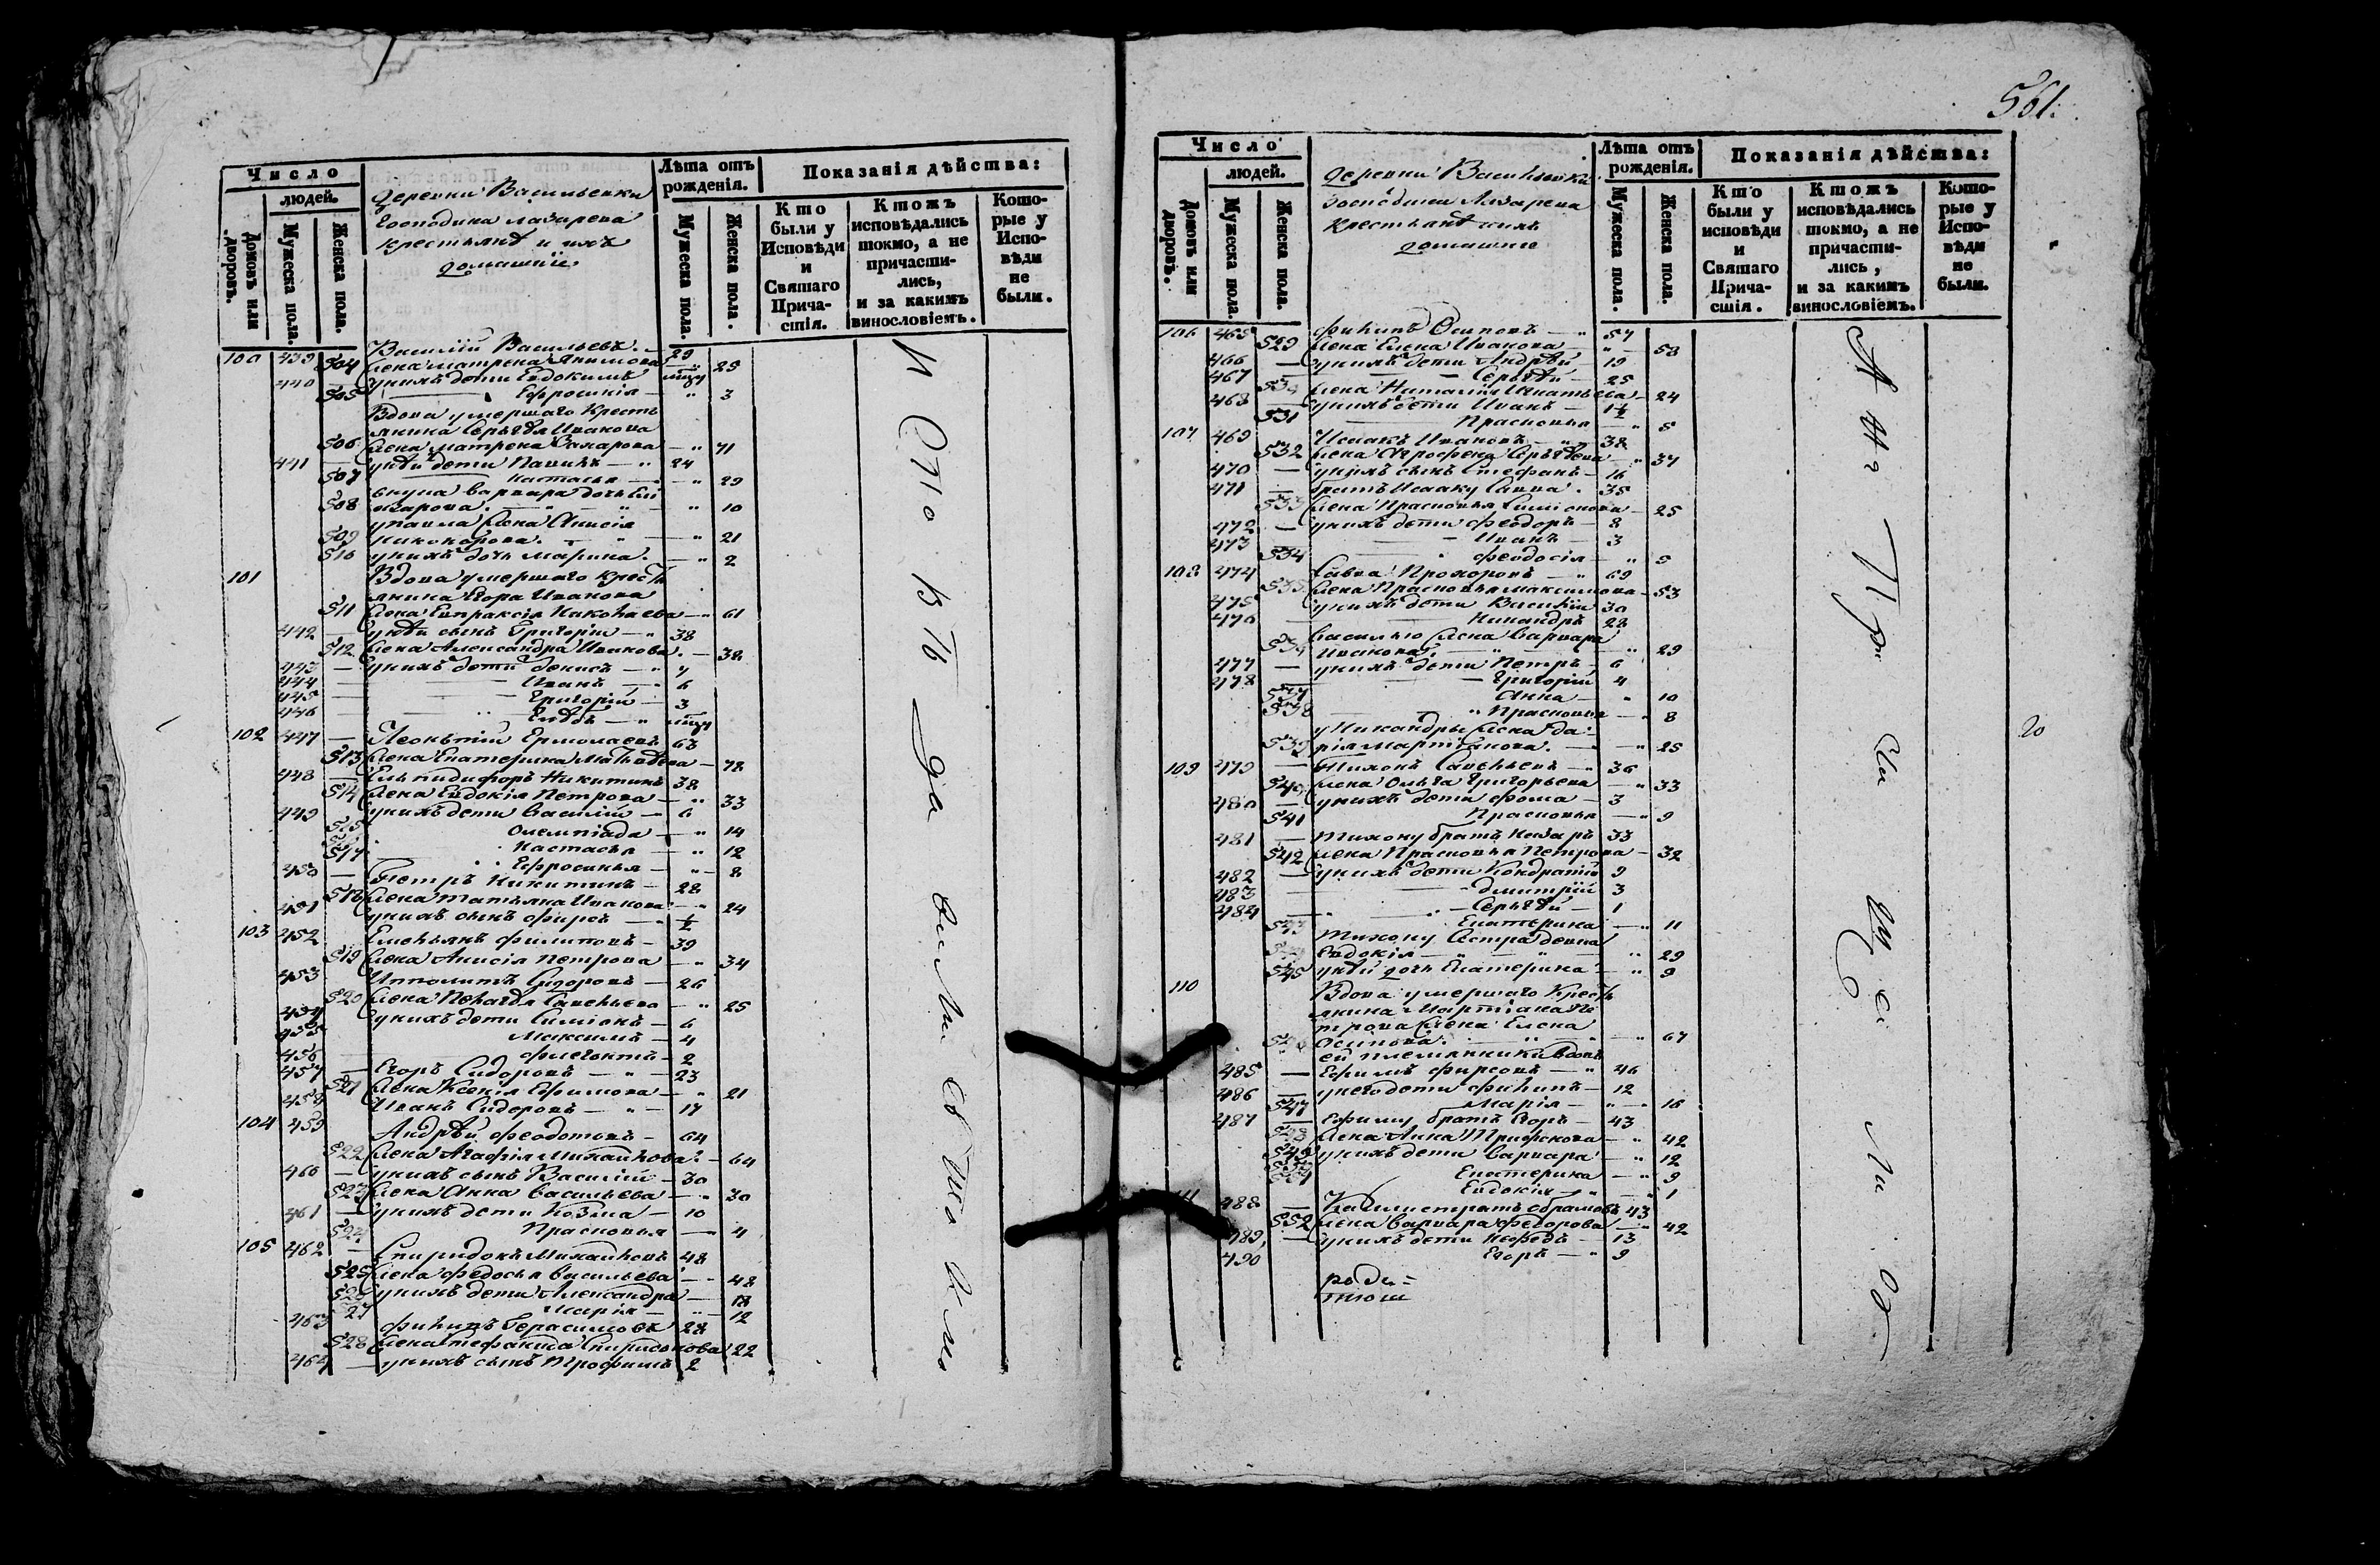 561.
Число
людей.
Домовъ или дворовъ.
Мужеска пола.
Женска пола.
деревни Васильевки
Господина Лазарева
крестьянѣ и ихъ
домашніи
Лѣта отъ рожденія.
Мужеска пола.
Женска пола.
Показанія дѣйства:
Кто были у Исповѣди и Святаго Причастія.
Ктожъ исповѣдались токмо, а не причастились, и за какимъ винословіемъ.
Которые у Исповѣди не были.
100 439 Василій Васильевъ 29
504 Жена Матрена Якимова 25
440 у нихъ дети Евдокимъ
505 Ефросинія 3
Вдова умершаго кресть
янина Сергѣя Иванова
506 жена Матрена Захарова 71
441 у нѣй дети Павилъ 24
507 Настасья 29
внука Варвара дочь
508 10
у Павла жена Анисія
509 Никонорова 21
510 у нихъ дочь Марина 2
101 Вдова умершаго кресть
янина Егора Иванова
511 жена Евпраксія Николаева 61
442 у нѣй сынъ Григорій 38
512 Жена Александра Иванова 38
443 у нихъ дети Денисъ 7
444 Иванъ 6
445 Григорій 3
446
102 447 Леонтій Ермолаевъ 63
513 Жена Екатерина Матвѣева 72
448 Елпидифоръ Никитинъ 38
514 Жена Евдокія Петрова 33
449 у нихъ дети Василій 6
515 Олимпіада 14
516 Настасья 12
517 Ефросинья 8
450 Петръ Никитинъ 28
518 Жена Татьяна Иванова 24
451 у нихъ сынъ Фирсъ ½
103 452 Емельянъ Филиповъ 39
519 Жена Анисія Петрова 34
453 Иполитъ Сидоровъ 26
520 Жена Пелагѣя Савельева 25
454 у нихъ дети Симіонъ 6
455 Максимъ 4
456 2
457 Егоръ Сидоровъ 23
521 Жена Ксенія Ефимова 21
458 Иванъ Сидоровъ 17
104 459 Андрѣй Феодотовъ 64
522 Жена Агафія Михайлова 64
460 у нихъ сынъ Василій 30
523 Жена Анна Васильева 30
461 у нихъ дети Козма 10
524 Прасковья 4
105 462 Спиридонъ Михайловъ 48
525 Жена Федосья Васильева 48
526 у нихъ дети Александра
527 Марія 12
463 Филипъ Герасимовъ 28
528 Жена Стефанида Спиридонова 22
464 у нихъ сынъ Трофимъ 2
Исповѣдались токмо
Число
людей.
Домовъ или дворовъ.
Мужеска пола.
Женска пола.
деревни Васильевки
Господина Лазарева
крестьянѣ и ихъ
домашніе
Лѣта отъ рожденія.
Мужеска пола.
Женска пола.
Показанія дѣйства:
Кто были у исповѣди и Святаго Причастія.
Ктожъ исповѣдались токмо, а не причастились, и за какимъ винословіемъ.
Которые у Исповѣди не были.
106 465 Филипъ Осиповъ 57
529 Жена Елена Иванова 58
466 у нихъ дети Андрѣй 19
467 Сергѣй 25
530 Жена Наталія Игнатьева 24
468 у нихъ дети Иванъ 1½
531 Прасковья 5
107 469 Исаакъ Ивановъ 38
532 Жена Агрофена Сергѣева 37
470 у нихъ сынъ Стефанъ 16
471 братъ Исааку Савва 35
533 Жена Прасковья Симіонова 25
472 у нихъ дети Феодоръ 8
473 Иванъ 3
534 Феодосія 5
108 474 Савва Прохоровъ 69
535 Жена Прасковья Максимова 53
475 у нихъ дети Василій 30
476 Никандръ 28
Василью жена Варвара
536 Иванова 29
477 у нихъ дети Петръ 6
478 Григорій 4
537 Анна 10
538 Прасковья 8
у Никандры жена Да-
539 рія Мартьянова 25
109 479 Тихонъ Савельевъ 36
540 Жена Ольга Григорьева 33
480 у нихъ дети Фома 3
541 Прасковья 9
481 Тихону братъ Назаръ 33
542 Жена Прасковья Петрова 32
482 у нихъ дети Кондратій 9
483 Дмитрій 3
484 Сергѣй 1
543 Екатерина 11
Тихону сестра девка
544 Евдокія 29
545 у нѣй дочь Екатерина 9
110 Вдова умершаго кресть
янина Мартіана Пе
трова жена Елена
546 Осипова 67
ей племянники вдовъ
485 Ефимъ Фирсовъ 46
486 у него дети Филипъ 12
547 Марія 16
487 Ефиму братъ Егоръ 43
548 Жена Анна Трифонова 42
549 у нихъ дети Варвара 12
550 Екатерина 9
551 Евдокія 1
111 488 Калистратъ Абрамовъ 43
552 Жена Варвара Федорова 42
489 у нихъ дети Нефедъ 13
490 Егоръ 9
А не Причастились
20